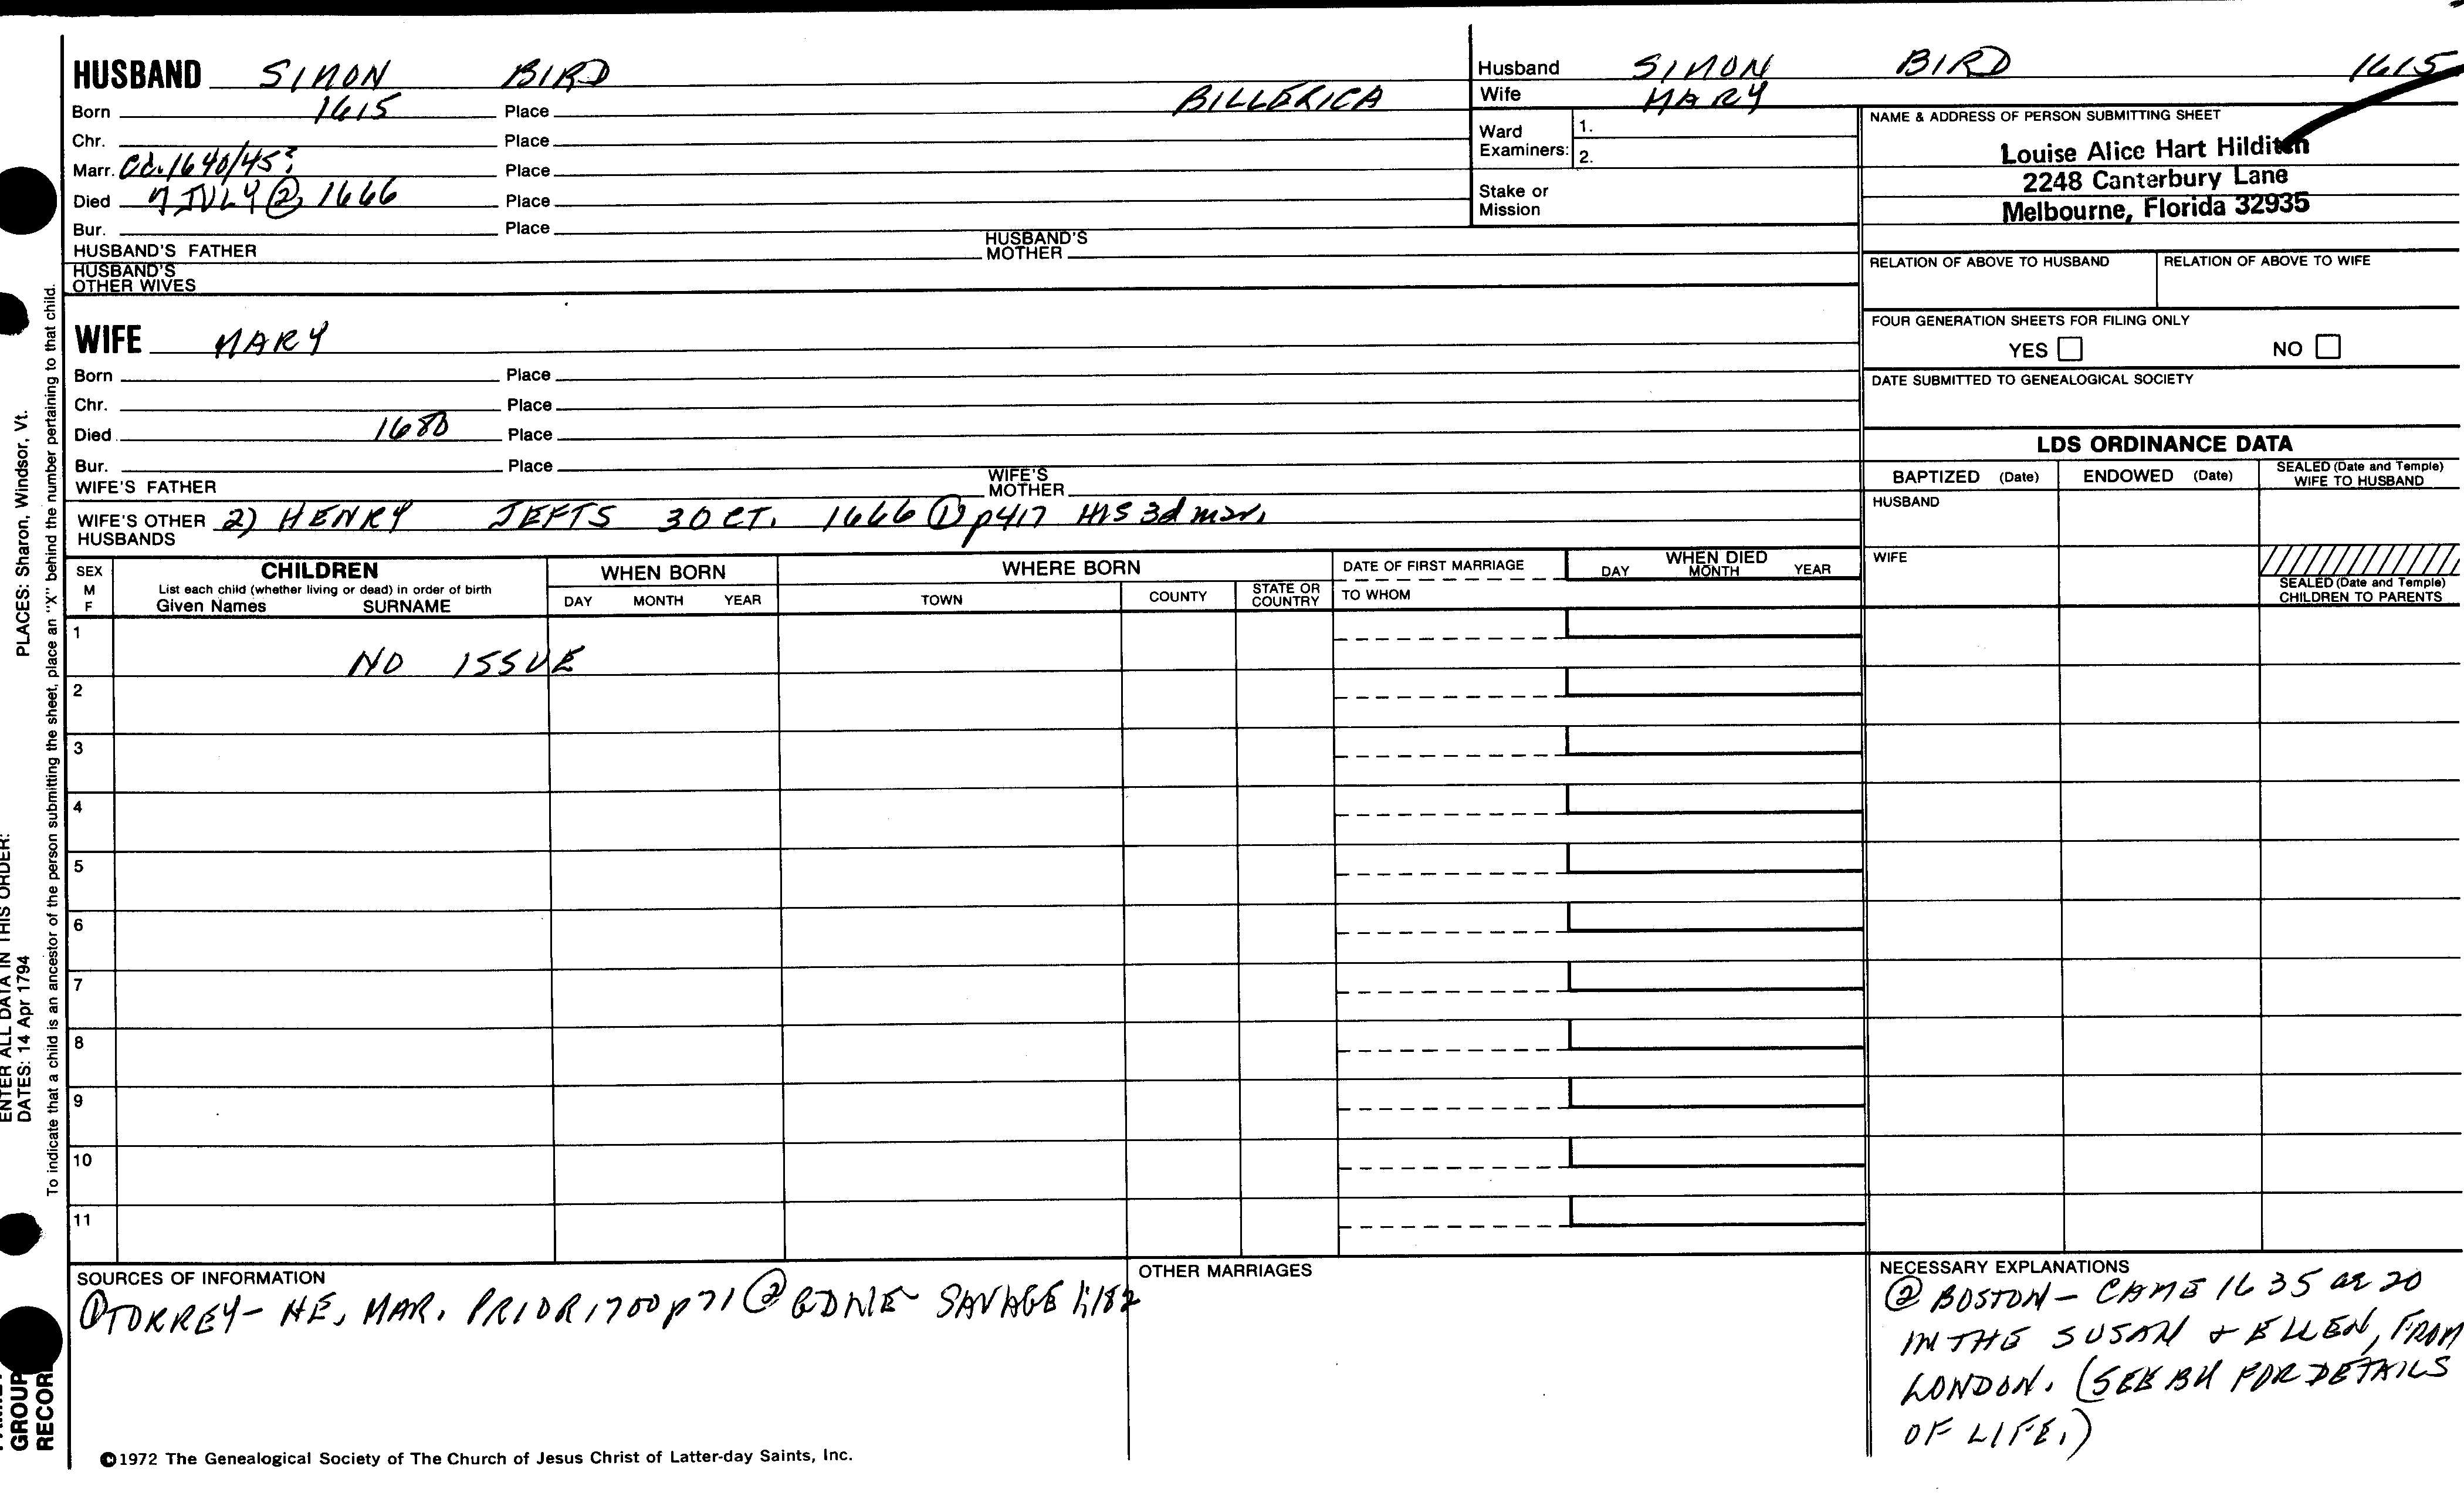 HUSBAND SIMON BIRD
Born 1615 Place BILLERICA
Chr. Place
Marr. Cd. 1640/45? Place
Died 7 JULY ② 1666 Place
Bur. Place
HUSBAND'S FATHER HUSBAND'S MOTHER
HUSBAND'S OTHER WIVES
WIFE MARY
Born Place
Chr. Place
Died 1680 Place
Bur. Place
WIFE'S FATHER WIFE'S MOTHER
WIFE'S OTHER HUSBANDS 2) HENRY JEFTS 3 OCT. 1666 ① p417 HIS 3d mar.
Husband SIMON BIRD 1615
Wife MARY
Ward Examiners: 1.
2.
Stake or Mission
NAME & ADDRESS OF PERSON SUBMITTING SHEET
Louise Alice Hart Hilditch
2248 Canterbury Lane
Melbourne, Florida 32935
RELATION OF ABOVE TO HUSBAND RELATION OF ABOVE TO WIFE
FOUR GENERATION SHEETS FOR FILING ONLY
YES NO
DATE SUBMITTED TO GENEALOGICAL SOCIETY
LDS ORDINANCE DATA
BAPTIZED (Date) ENDOWED (Date) SEALED (Date and Temple) WIFE TO HUSBAND
HUSBAND
WIFE
SEALED (Date and Temple) CHILDREN TO PARENTS
SEX M F
CHILDREN
List each child (whether living or dead) in order of birth
Given Names SURNAME
WHEN BORN
DAY MONTH YEAR
WHERE BORN
TOWN COUNTY STATE OR COUNTRY
DATE OF FIRST MARRIAGE
TO WHOM
WHEN DIED
DAY MONTH YEAR
1
NO ISSUE
2
3
4
5
6
7
8
9
10
11
SOURCES OF INFORMATION
① TORREY- NE, MAR. PRIOR 1700 p71 ② GDNE SAVAGE 1:182
OTHER MARRIAGES
NECESSARY EXPLANATIONS
② BOSTON - CAME 1635 ae 20
IN THE SUSAN & ELLEN, FROM
LONDON. (SEE BK FOR DETAILS
OF LIFE.)
©1972 The Genealogical Society of The Church of Jesus Christ of Latter-day Saints, Inc.
PLACES: Sharon, Windsor, Vt.
ENTER ALL DATA IN THIS ORDER:
DATES: 14 Apr 1794
To indicate that a child is an ancestor of the person submitting the sheet, place an "X" behind the number pertaining to that child.
GROUP
RECOR